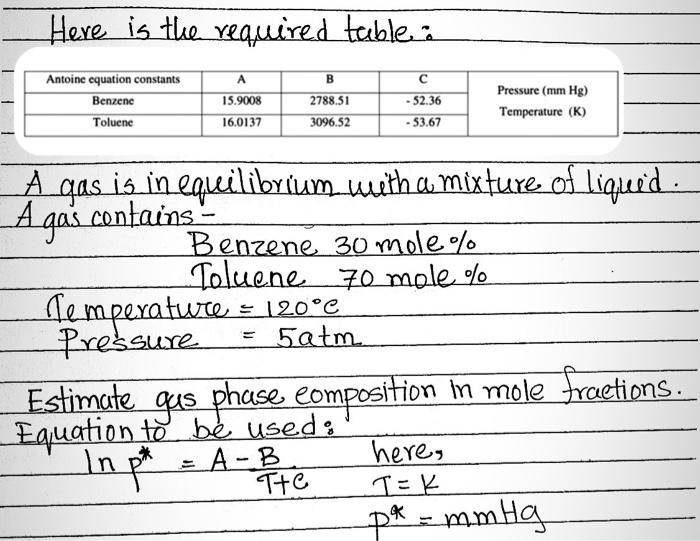 Here is the required table:
Antoine equation constants A B C Pressure (mm Hg) Temperature (K)
Benzene 15.9008 2788.51 - 52.36
Toluene 16.0137 3096.52 - 53.67
A gas is in equilibrium with a mixture of liquid.
A gas contains -
Benzene 30 mole %
Toluene 70 mole %
Temperature = 120°C
Pressure = 5 atm
Estimate gas phase composition in mole fractions.
Equation to be used:
ln p* = A - B / T+C here,
T = K
p* = mmHg